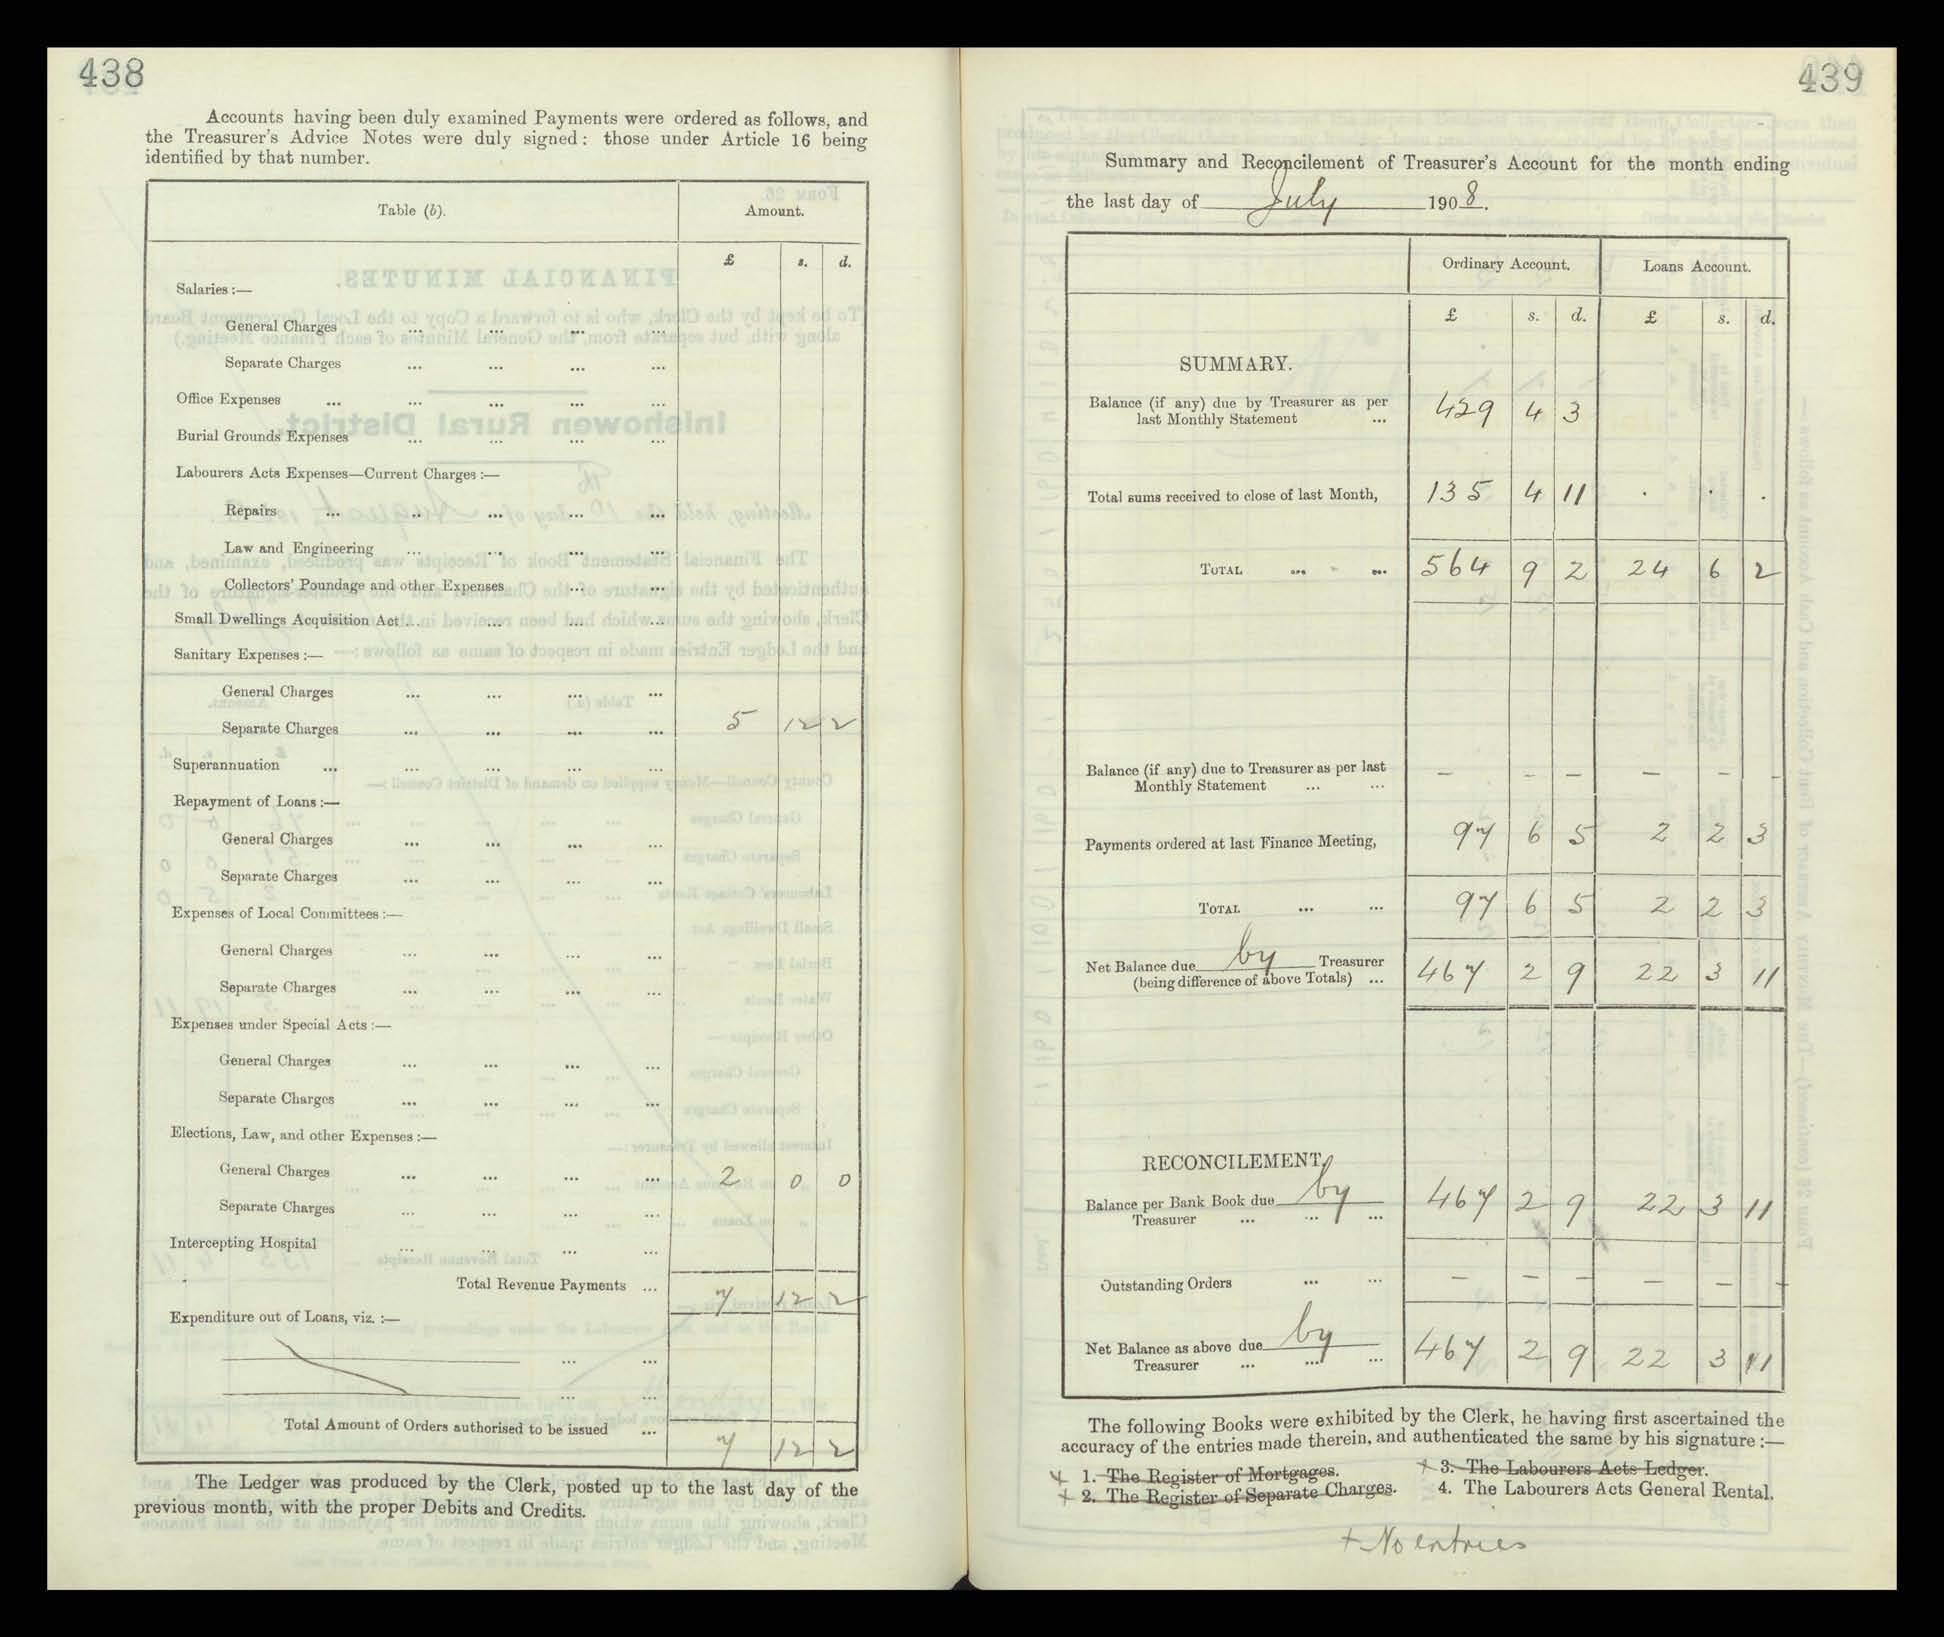 438
Accounts having been duly examined Payments were ordered as follows, and
the Treasurer's Advice Notes were duly signed: those under Article 16 being
identified by that number.
Table (b). Amount.
£ s. d.
Salaries :—
General Charges ... ... ... ...
Separate Charges ... ... ... ...
Office Expenses ... ... ... ... ...
Burial Grounds Expenses ... ... ... ...
Labourers Acts Expenses—Current Charges :—
Repairs ... ... ... ... ...
Law and Engineering ... ... ... ...
Collectors' Poundage and other Expenses ... ...
Small Dwellings Acquisition Act ... ... ... ...
Sanitary Expenses :—
General Charges ... ... ... ...
Separate Charges ... ... ... ... 5 12 2
Superannuation ... ... ... ... ...
Repayment of Loans :—
General Charges ... ... ... ...
Separate Charges ... ... ... ...
Expenses of Local Committees :—
General Charges ... ... ... ...
Separate Charges ... ... ... ...
Expenses under Special Acts :—
General Charges ... ... ... ...
Separate Charges ... ... ... ...
Elections, Law, and other Expenses :—
General Charges ... ... ... ... 2 0 0
Separate Charges ... ... ... ...
Intercepting Hospital ... ... ... ...
Total Revenue Payments ... 7 12 2
Expenditure out of Loans, viz. :—
... ...
... ...
Total Amount of Orders authorised to be issued ... 7 12 2
The Ledger was produced by the Clerk, posted up to the last day of the
previous month, with the proper Debits and Credits.
439
Summary and Reconcilement of Treasurer's Account for the month ending
the last day of July 1908.
Ordinary Account. Loans Account.
£ s. d. £ s. d.
SUMMARY.
Balance (if any) due by Treasurer as per
last Monthly Statement ... 429 4 3
Total sums received to close of last Month, 135 4 11 . . .
TOTAL ... ... 564 9 2 24 6 2
Balance (if any) due to Treasurer as per last
Monthly Statement ... ... — — — — — —
Payments ordered at last Finance Meeting, 97 6 5 2 2 3
TOTAL ... ... 97 6 5 2 2 3
Net Balance due by Treasurer
(being difference of above Totals) ... 467 2 9 22 3 11
RECONCILEMENT
Balance per Bank Book due by
Treasurer ... ... ... 467 2 9 22 3 11
Outstanding Orders ... ... — — — — — —
Net Balance as above due by
Treasurer ... ... ... 467 2 9 22 3 11
The following Books were exhibited by the Clerk, he having first ascertained the
accuracy of the entries made therein, and authenticated the same by his signature :—
+ 1. The Register of Mortgages. + 3. The Labourers Acts Ledger.
+ 2. The Register of Separate Charges. 4. The Labourers Acts General Rental.
+ No entries